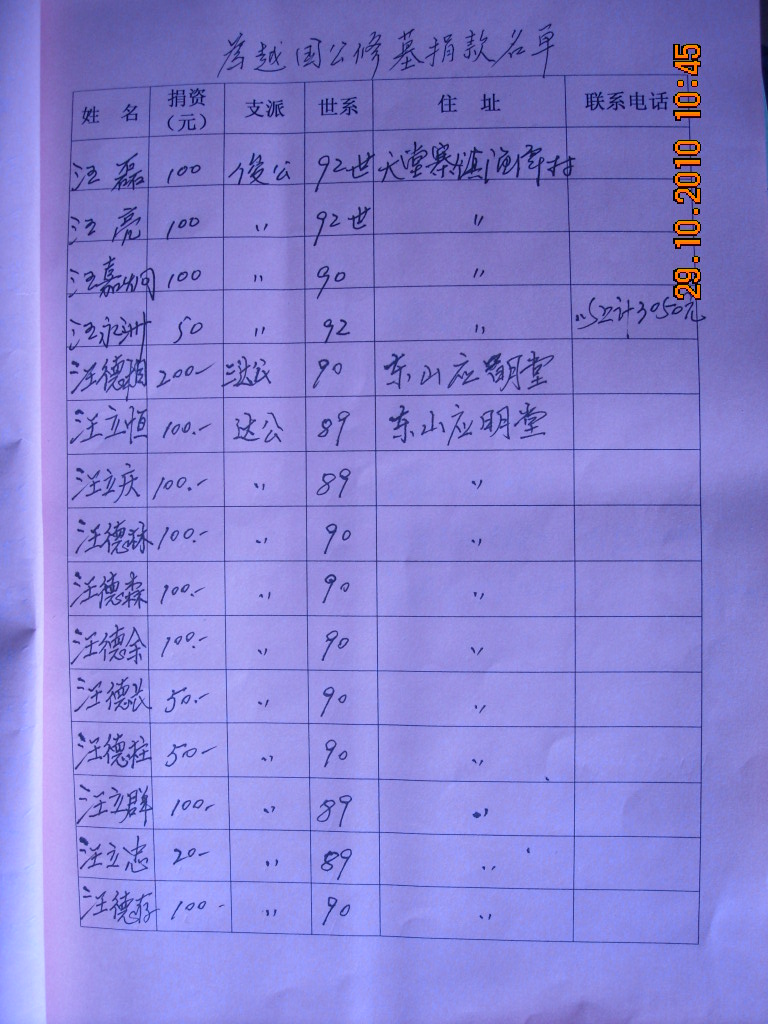 为越国公修墓捐款名单
姓 名 捐资（元） 支派 世系 住 址 联系电话
汪磊 100 俊公 92世 天堂寨镇渔潭村
汪亮 100 〃 92世 〃
汪嘉炯 100 〃 90 〃
汪永洲 50 〃 92 〃 以上计3050元
汪德相 200- 达公 90 东山应明堂
汪立恒 100.- 达公 89 东山应明堂
汪立庆 100.- 〃 89 〃
汪德 100.- 〃 90 〃
汪德森 100.- 〃 90 〃
汪德余 100.- 〃 90 〃
汪德 50.- 〃 90 〃
汪德柱 50- 〃 90 〃
汪立群 100.- 〃 89 〃
汪立忠 20- 〃 89 〃
汪德存 100- 〃 90 〃
29.10.2010 10:45